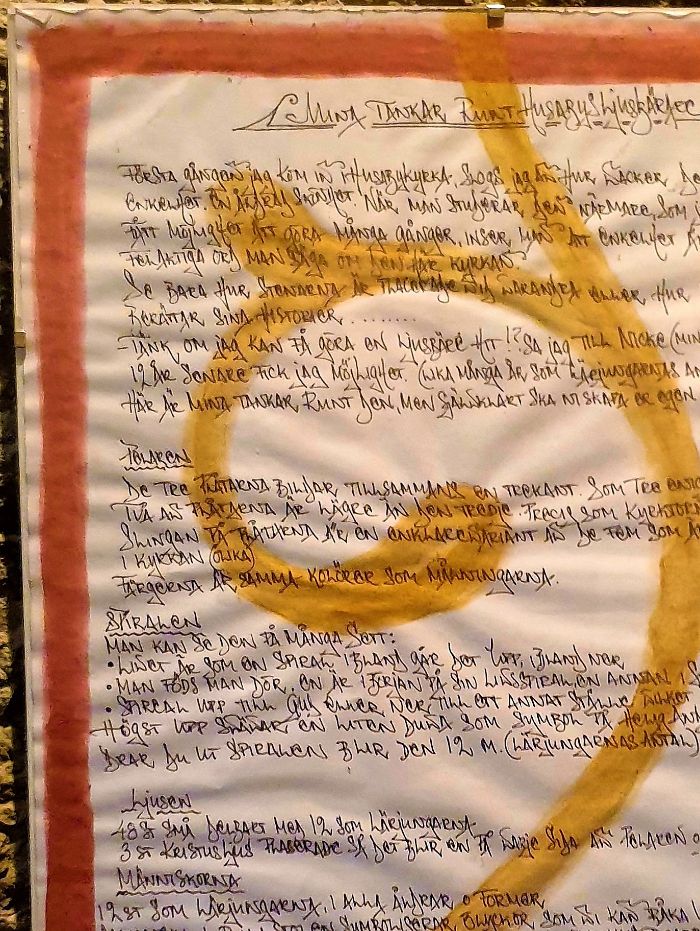 MINA TANKAR RUNT HUSABYS LJUSBÄRARE
FÖRSTA GÅNGEN JAG KOM IN I HUSABYKYRKA, SLOGS JAG AV HUR VACKER DE
ENKELHET EN SKÖNHET NÄR MAN STUDERAR DEN NÄRMARE, SOM J
FÅTT MÖJLIGHET ATT GÖRA MÅNGA GÅNGER, INSER MAN ATT ENKELHET
FELAKTIGA ORD MAN SÄGA OM DEN HÄR KYRKAN.
SE BARA HUR STENARNA ÄR PLACERADE VID VARANDRA ELLER HUR
BERÄTTAR SINA HISTORIER........
-TÄNK OM JAG KAN FÅ GÖRA EN LJUSBÄRE HIT!? SA JAG TILL NICKE (MIN
12 ÅR SENARE FICK JAG MÖJLIGHET. (LIKA MÅNGA ÅR SOM LÄRJUNGARNAS AN
HÄR ÄR MINA TANKAR RUNT DEN, MEN SJÄLVKLART SKA NI SKAPA ER EGEN
PELAREN
DE TRE PLÅTARNA BILDAR TILLSAMMANS EN TREKANT. SOM TRE
TVÅ AV PLÅTARNA ÄR LÄGRE ÄN DEN TREDJE. PRECIS SOM KYRKTORN
SVINGAN PÅ PLÅTARNA ÄR EN ENKLARE VARIANT AV DE FEM SOM
I KYRKAN
FÄRGERNA ÄR SAMMA KOLÖRER SOM MÅLNINGARNA.
SPIRALEN
MAN KAN SE DEN PÅ MÅNGA SÄTT:
• LIVET ÄR SOM EN SPIRAL IBLAND GÅR DET UPP, IBLAND NER
• MAN FÖDS MAN DÖR. EN ÄR I BÖRJAN PÅ SIN LIVSSPIRAL EN ANNAN I
• SPIRAL UPP TILL GUD ELLER NER TILL ETT ANNAT STÄLLE VILKET
HÖGST UPP SVÄVAR EN LITEN DUVA SOM SYMBOL PÅ HELIG
DRAR DU UT SPIRALEN BLIR DEN 12 M. (LÄRJUNGARNAS ANTAL)
LJUSEN
48 ST SMÅ DELBART MED 12 SOM LÄRJUNGARNA
3 ST KRISTUSLJUS PLASERADE SÅ DET BLIR EN PÅ VARJE SIDA AV PELAREN O
MÄNNISKORNA
12 ST SOM LÄRJUNGARNA, I ALLA ÅLDRAR O FORMER
SYMBOLISERAR OLYCKOR, SOM NI KAN RÅKA